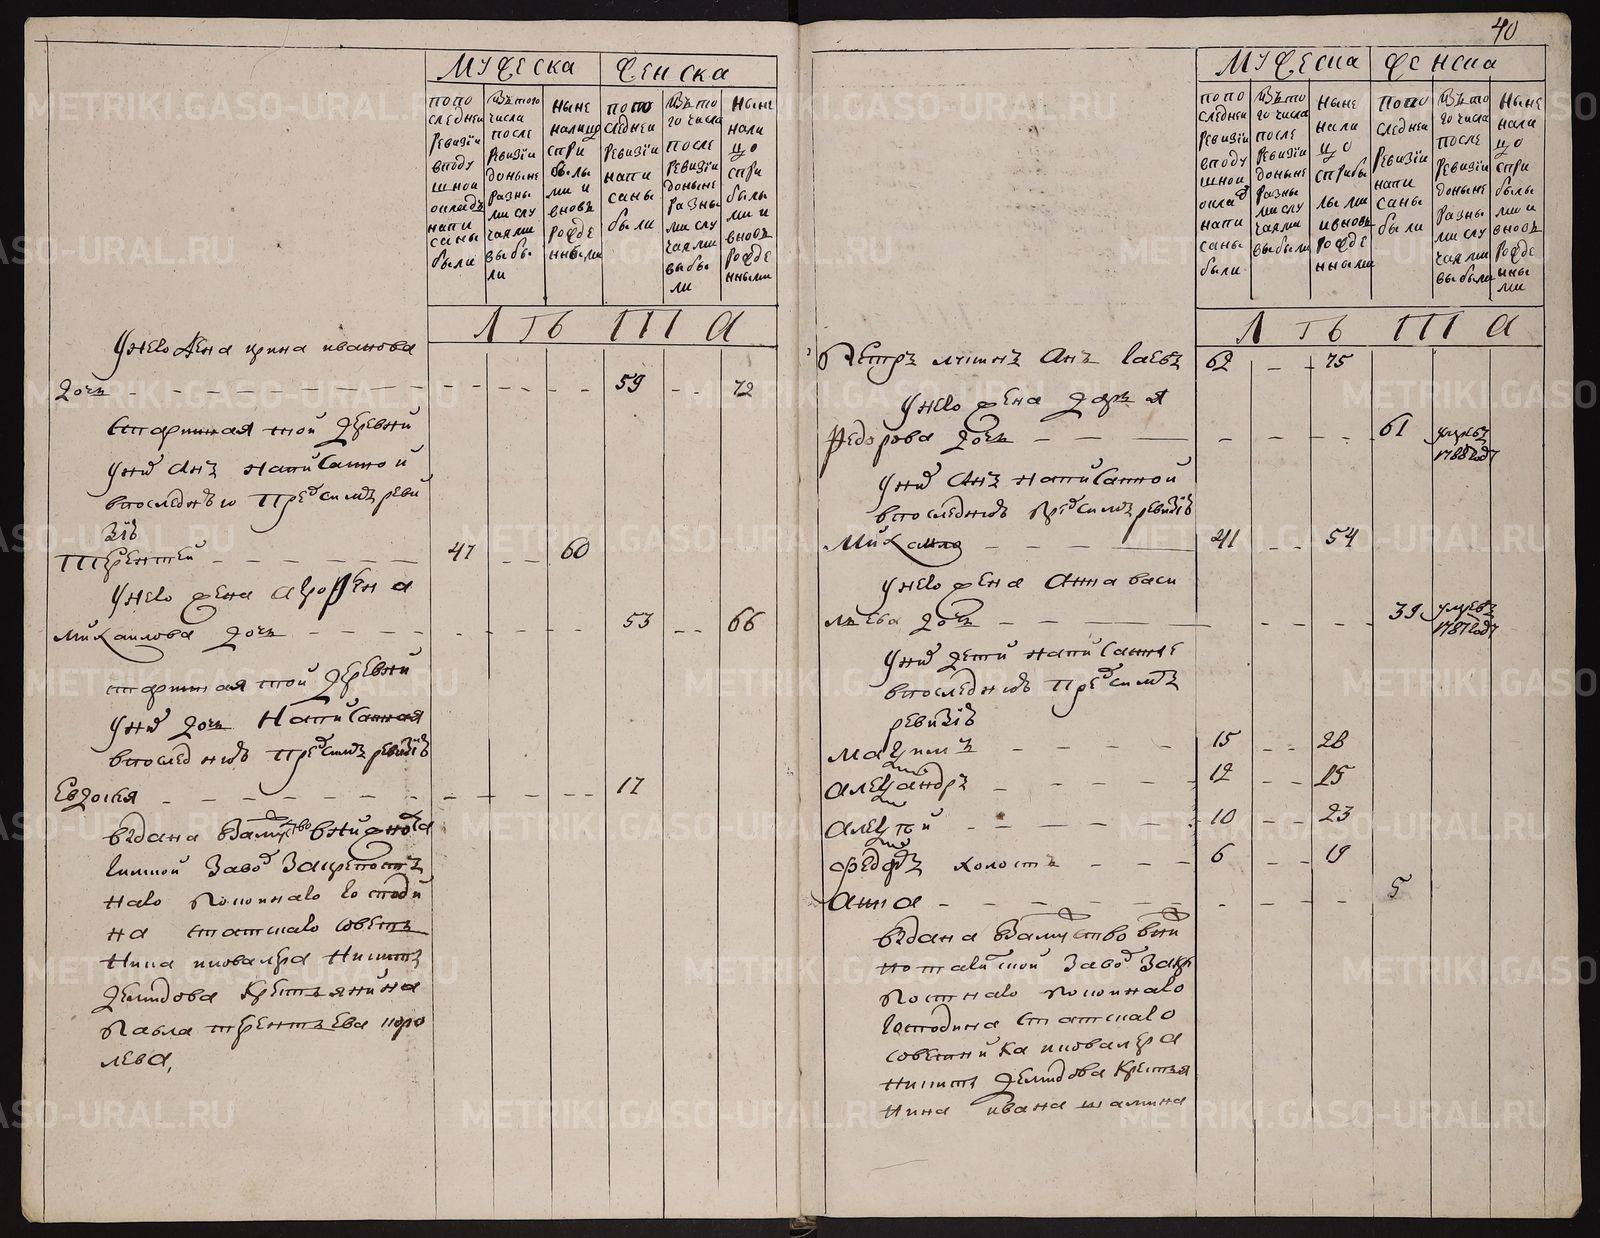 40
МУЖЕСКА ЖЕНСКА
попо следней ревизіи вподу шной окладъ написаны были
Изтого числа после ревизіи доныне разны ми слу чаями выбы ли
ныне налицо спри былы ми и вновь рожде нными
попо следней ревизіи напи саны были
Изто го числа после ревизіи доныне разны ми слу чаями выбы ли
Ныне нали цо спри былы ми и вновь рожде нными
ЛѢТА
Унего жена ирина иванова
дочь 59 72
Старинная той деревни
Унихъ Снъ написанной
впоследнюю предсимъ реви
зіѣ
Терентей 47 60
Унего жена Агрофена
михаилова дочь 53 66
старинная той деревни
Унихъ дочь Написанная
впоследнюѣ предсимъ ревизіѣ
Евдокѣя 17
выдана взамужство внижно та
гилской завод Закрепостъ
наго покойнаго господи
на статскаго советъ
ника ковалера Никиты
демидова Крестьянина
Павла терентьева коро
лева,
МУЖЕСКА ЖЕНСКА
попо следней ревизіи вподу шной оклад напи саны были
Изъто го числа после ревизіи доныне разны ми слу чаями выбыли
Ныне нали цо сприбы лыми ивновь рожде нными
попо следней ревизіи напи саны были
Изъто го числа после ревизіи доныне разны ми слу чаями выбыли
Ныне нали цо спри былы ми и вновь рожде нны ми
ЛѢТА
Петръ Снъ 62 75
Унего жена дарья
федорова дочь 61 умре въ
1788 году
Унихъ Снъ написанной
впоследнюѣ предсимъ ревизіѣ
Михаило 41 54
Унего жена Анна васи
льева дочь 39 умре въ
1787 году
Унихъ дети написанные
впоследнюѣ предсимъ
ревизіѣ
Мацимъ 15 28
Александръ 12 25
Алецѣй 10 23
федоръ холостъ 6 19
Анна 5
выдана взамужство вни
жнотагилской завод Закре
постнаго покойнаго
господина статскаго
советника ковалера
Никиты демидова Крестья
нина ивана шамина
METRIKI.GASO-URAL.RU